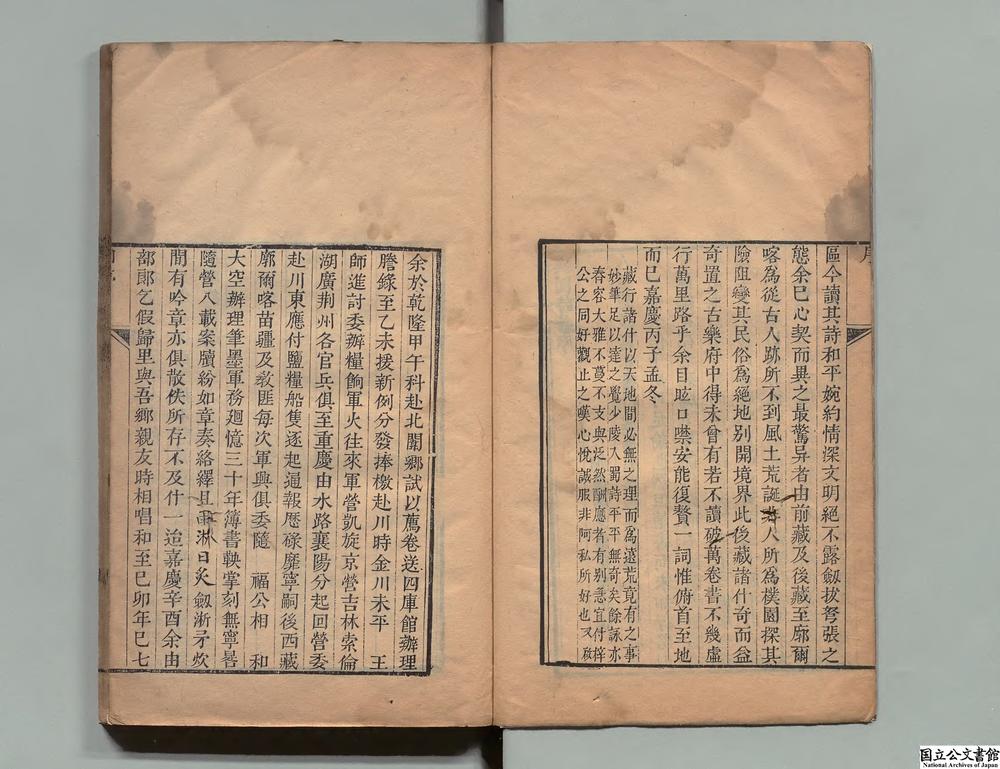 序
區今讀其詩和平婉約情深文明絕不露劒拔弩張之
態余巳心契而異之最驚异者由前藏及後藏至廓爾
喀爲從古人跡所不到風土荒誕人所爲樸園探其
險阻變其民俗爲絕地别開境界此後藏諸什奇而益
奇置之古樂府中得未曾有若不讀破萬卷書不幾虛
行萬里路乎余目眩口噤安能復贅一詞惟俯首至地
而巳嘉慶丙子孟冬
藏行諸什以天地間必無之理而爲遠荒竟有之事
妙筆足以達之覺少陵入蜀詩平平無奇矣餘詠亦
春容大雅不蔓不支與泛然酬應者有别急宜付梓
公之同好觀止之嘆心悅誠服非阿私所好也又啟
余於乾隆甲午科赴北闈鄉試以薦卷送四庫館辦理
謄錄至乙未援新例分發捧檄赴川時金川未平 王
師進討委辦糧餉軍火往來軍營凱旋京營吉林索倫
湖廣荆州各官兵俱至重慶由水路襄陽分起回營委
赴川東應付鹽糧船隻逐起逼報歷碌靡寧嗣後西藏
廓爾喀苗疆及敎匪每次軍興俱委隨 福公相 和
大空辦理筆墨軍務迴憶三十年簿書鞅掌刻無寧晷
隨營八載案牘紛如章奏絡繹且雨淋日炙劒淅矛炊
間有吟章亦俱散佚所存不及什一迨嘉慶辛酉余由
部郎乞假歸里與吾鄉親友時相唱和至巳卯年巳七
国立公文書館
National Archives of Japan